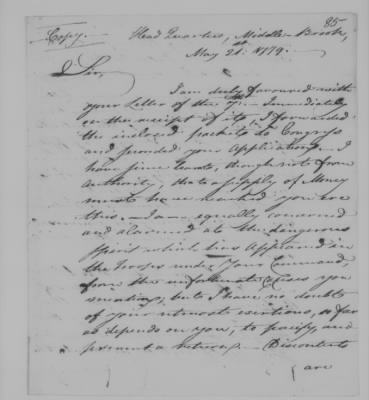 85
Copy.
Head Quarters, Middle-Brook,
May 21st. 1779.
Sir,
I am duly favoured with
your Letter of the 7th.— Immediately
on the receipt of it, I forwarded
the inclosed packets to Congress
and seconded your Application.— I
have since learnt, though not from
authority, that a supply of Money
must have reached you ere
this.— I am equally concerned
and alarmed at the dangerous
spirit which has appeared in
the Troops under Your Command,
from the unfortunate causes you
mention, but I have no doubts
of your utmost exertions, so far
as depends on you, to pacify, and
prevent a return.— Discontents
are